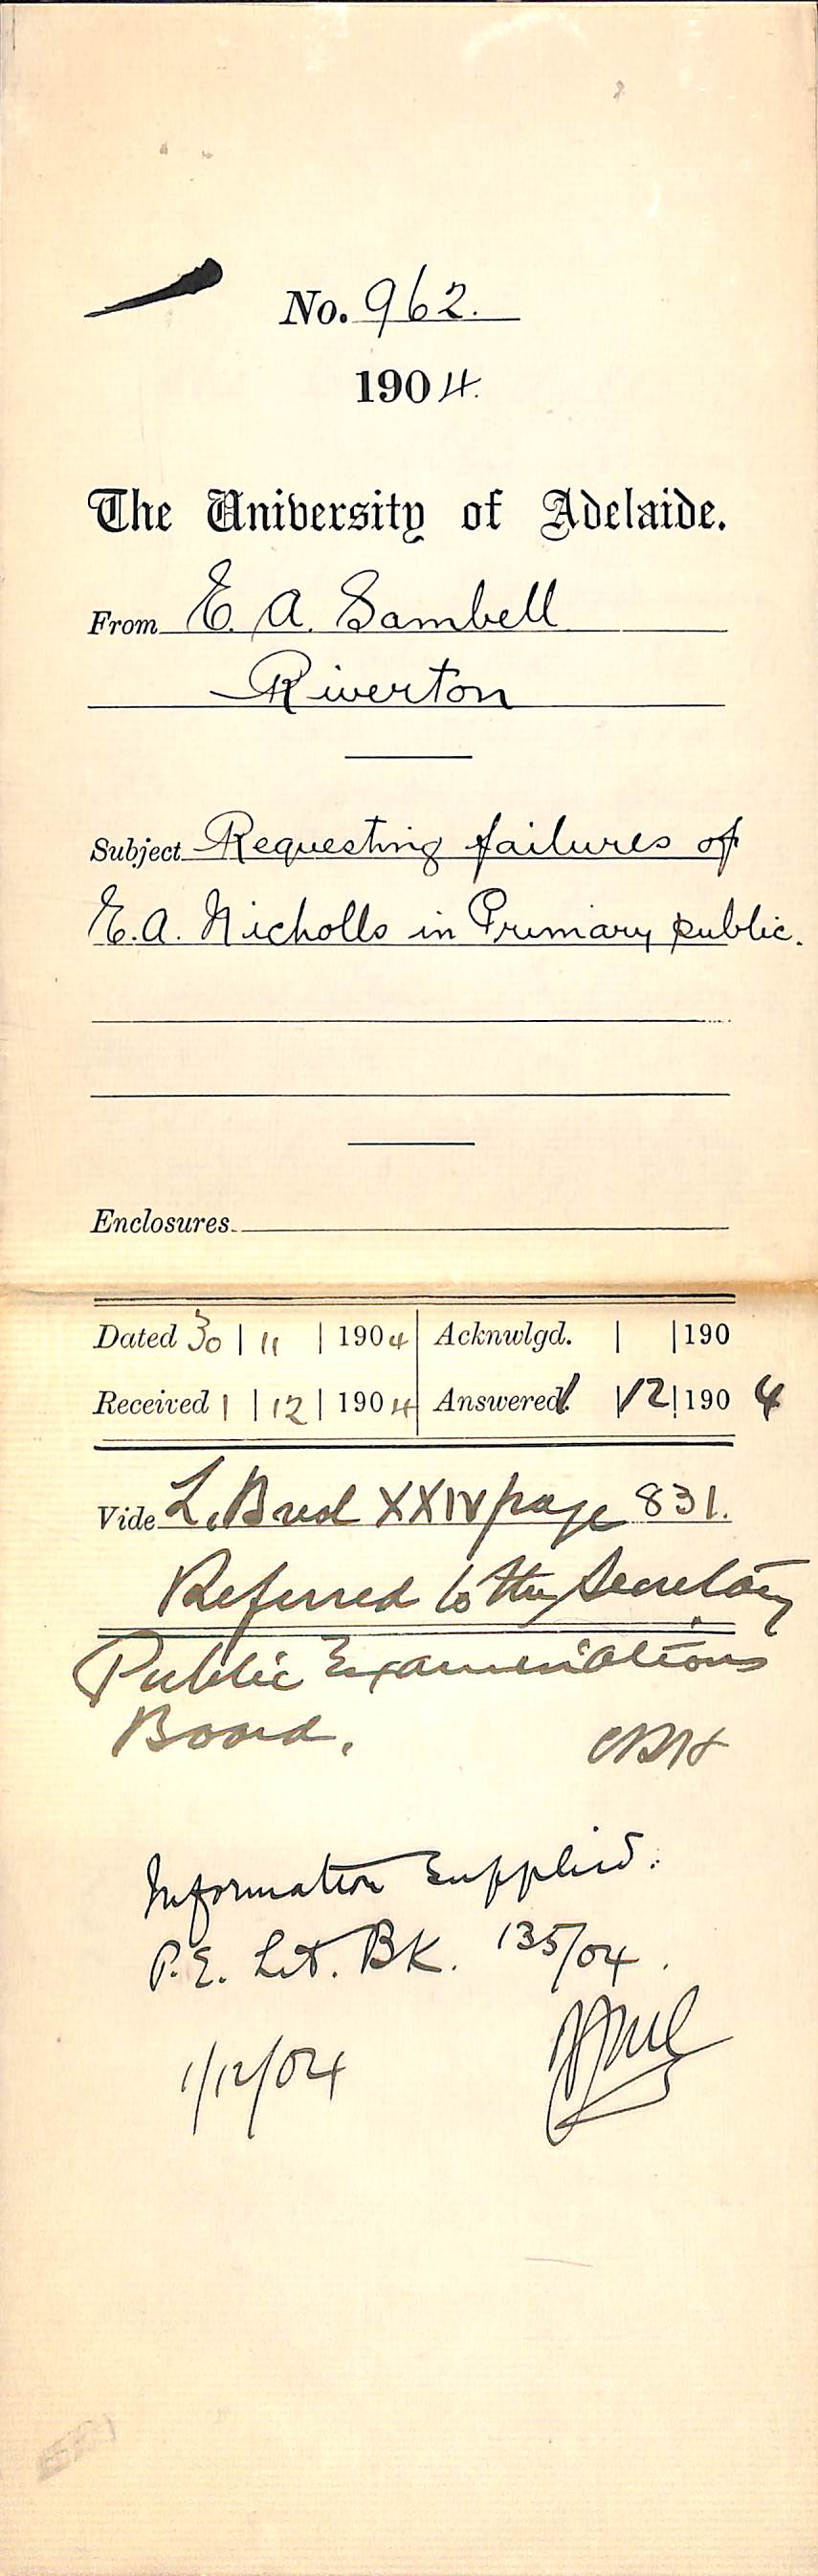 No. 962.
1904.
The University of Adelaide.
From E. A. Sambell
Riverton
Subject Requesting failures of
E.A. Nicholls in Primary public.
Enclosures
Dated 30 | 11 | 1904 Acknwlgd. | | 190
Received 1 | 12 | 1904 Answered 1 | 12 | 1904
Vide L. Book XXIV page 831.
Referred to the Secretary
Public Examinations
Board.
Information Supplied.
P.E. Let. Bk. 135/04.
1/12/04